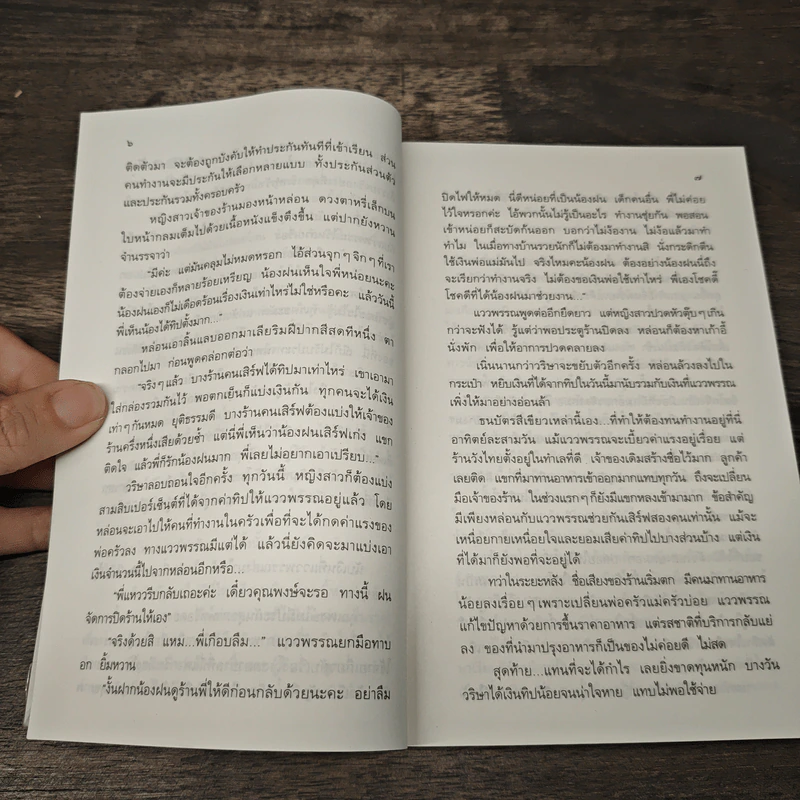 ๖
ติดตัวมา จะต้องถูกบังคับให้ทำประกันทันทีที่เข้าเรียน ส่วน
คนทำงานจะมีประกันให้เลือกหลายแบบ ทั้งประกันส่วนตัว
และประกันรวมทั้งครอบครัว
หญิงสาวเจ้าของร้านมองหน้าหล่อน ดวงตาหรี่เล็กบน
ใบหน้ากลมเต็มไปด้วยเนื้อหนังแข็งตึงขึ้น แต่ปากยังหวาน
จำนรรจาว่า
“มีค่ะ แต่มันคลุมไม่หมดหรอก ไอ้ส่วนจุกๆ จิกๆ ที่เรา
ต้องจ่ายเองก็หลายร้อยเหรียญ น้องฝนเห็นใจพี่หน่อยนะคะ
น้องฝนเองก็ไม่เดือดร้อนเรื่องเงินเท่าไหร่ไม่ใช่หรือคะ แล้ววันนี้
พี่เห็นน้องได้ทิปตั้งมาก...”
หล่อนเอาลิ้นแลบออกมาเลียริมฝีปากสีสดทีหนึ่ง ตา
กลอกไปมา ก่อนพูดคล่องต่อว่า
“จริงๆ แล้ว บางร้านคนเสิร์ฟได้ทิปมาเท่าไหร่ เขาเอามา
ใส่กล่องรวมกันไว้ พอตกเย็นก็แบ่งเงินกัน ทุกคนจะได้เงิน
เท่าๆ กันหมด ยุติธรรมดี บางร้านคนเสิร์ฟต้องแบ่งให้เจ้าของ
ร้านครึ่งหนึ่งเสียด้วยซ้ำ แต่นี่พี่เห็นว่าน้องฝนเสิร์ฟเก่ง แขก
ติดใจ แล้วพี่ก็รักน้องฝนมาก พี่เลยไม่อยากเอาเปรียบ...”
วริษาลอบถอนใจอีกครั้ง ทุกวันนี้ หญิงสาวก็ต้องแบ่ง
สามสิบเปอร์เซ็นต์ที่ได้จากค่าทิปให้แววพรรณอยู่แล้ว โดย
หล่อนจะเอาไปให้คนที่ทำงานในครัวเพื่อที่จะได้กดค่าแรงของ
พ่อครัวลง ทางแววพรรณมีแต่ได้ แล้วนี่ยังคิดจะมาแบ่งเอา
เงินจำนวนนี้ไปจากหล่อนอีกหรือ...
“พี่แหวววรีบกลับเถอะค่ะ เดี๋ยวคุณพงษ์จะรอ ทางนี้ ฝน
จัดการปิดร้านให้เอง”
“จริงด้วยสิ แหม...พี่เกือบลืม...” แววพรรณยกมือทาบ
อก ยิ้มหวาน
“งั้นฝากน้องฝนดูร้านพี่ให้ดีก่อนกลับด้วยนะคะ อย่าลืม
๗
ปิดไฟให้หมด นี่ดีหน่อยที่เป็นน้องฝน เด็กคนอื่น พี่ไม่ค่อย
ไว้ใจหรอกค่ะ ไอ้พวกนั้นไม่รู้เป็นอะไร ทำงานชุ่ยกัน พอสอน
เข้าหน่อยก็สะบัดก้นออก บอกว่าไม่ง้องาน ไม่ง้อแล้วมาทำ
ทำไม ในเมื่อทางบ้านรวยนักก็ไม่ต้องมาทำงานสิ นั่งกระดิกตีน
ใช้เงินพ่อแม่มันไป จริงไหมคะน้องฝน ต้องอย่างน้องฝนนี่ถึง
จะเรียกว่าทำงานจริง ไม่ต้องขอเงินพ่อใช้เท่าไหร่ พี่เองโชคดี๊
โชคดีที่ได้น้องฝนมาช่วยงาน...”
แววพรรณพูดต่ออีกยืดยาว แต่หญิงสาวปวดหัวตุ๊บๆ เกิน
กว่าจะฟังได้ รู้แต่ว่าพอประตูร้านปิดลง หล่อนก็ต้องหาเก้าอี้
นั่งพัก เพื่อให้อาการปวดคลายลง
เนิ่นนานกว่าวริษาจะขยับตัวอีกครั้ง หล่อนล้วงลงไปใน
กระเป๋า หยิบเงินที่ได้จากทิปในวันนี้มานับรวมกับเงินที่แววพรรณ
เพิ่งให้มาอย่างอ่อนล้า
ธนบัตรสีเขียวเหล่านี้เอง...ที่ทำให้ต้องทนทำงานอยู่ที่นี่
อาทิตย์ละสามวัน แม้แววพรรณจะเบี้ยวค่าแรงอยู่เรื่อย แต่
ร้านวังไทยตั้งอยู่ในทำเลที่ดี เจ้าของเดิมสร้างชื่อไว้มาก ลูกค้า
เลยติด แขกที่มาทานอาหารเข้าออกมากแทบทุกวัน ถึงจะเปลี่ยน
มือเจ้าของร้าน ในช่วงแรกๆ ก็ยังมีแขกหลงเข้ามามาก ข้อสำคัญ
มีเพียงหล่อนกับแววพรรณช่วยกันเสิร์ฟสองคนเท่านั้น แม้จะ
เหนื่อยกายเหนื่อยใจและยอมเสียค่าทิปไปบางส่วนบ้าง แต่เงิน
ที่ได้มาก็ยังพอที่จะอยู่ได้
ทว่าในระยะหลัง ชื่อเสียงของร้านเริ่มตก มีคนมาทานอาหาร
น้อยลงเรื่อยๆ เพราะเปลี่ยนพ่อครัวแม่ครัวบ่อย แววพรรณ
แก้ไขปัญหาด้วยการขึ้นราคาอาหาร แต่รสชาติที่บริการกลับแย่
ลง ของที่นำมาปรุงอาหารก็เป็นของไม่ค่อยดี ไม่สด
สุดท้าย...แทนที่จะได้กำไร เลยยิ่งขาดทุนหนัก บางวัน
วริษาได้เงินทิปน้อยจนน่าใจหาย แทบไม่พอใช้จ่าย